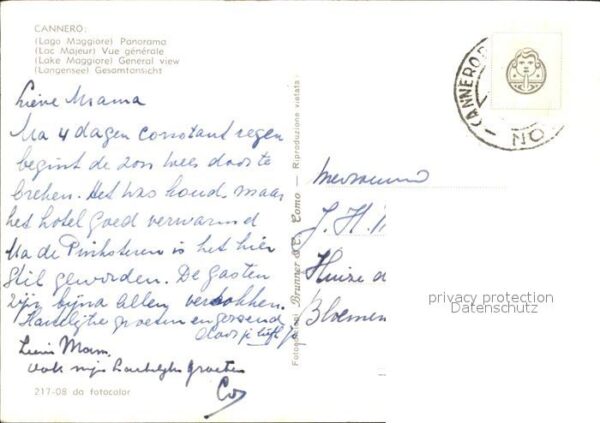 CANNERO:
(Lago Maggiore) Panorama
(Lac Majeur) Vue générale
(Lake Maggiore) General view
(Langensee) Gesamtansicht
Lieve Mama
Na 4 dagen constant regen
begint de zon weer door te
breken. Het was koud, maar
het hotel goed verwarmd
Na de Pinksteren is het hier
stil geworden. De gasten
zijn bijna allen vertrokken.
Hartelijke groeten en gezoend
door je liefh
Lieve Mam.
Ook mijn hartelijke groeten
Co
217-08 da fotocolor
Fotoedizioni Brunner & C. Como — Riproduzione vietata
CANNERO
NO
Mevrouw
J. H.
Huize d
Bloemen
privacy protection
Datenschutz